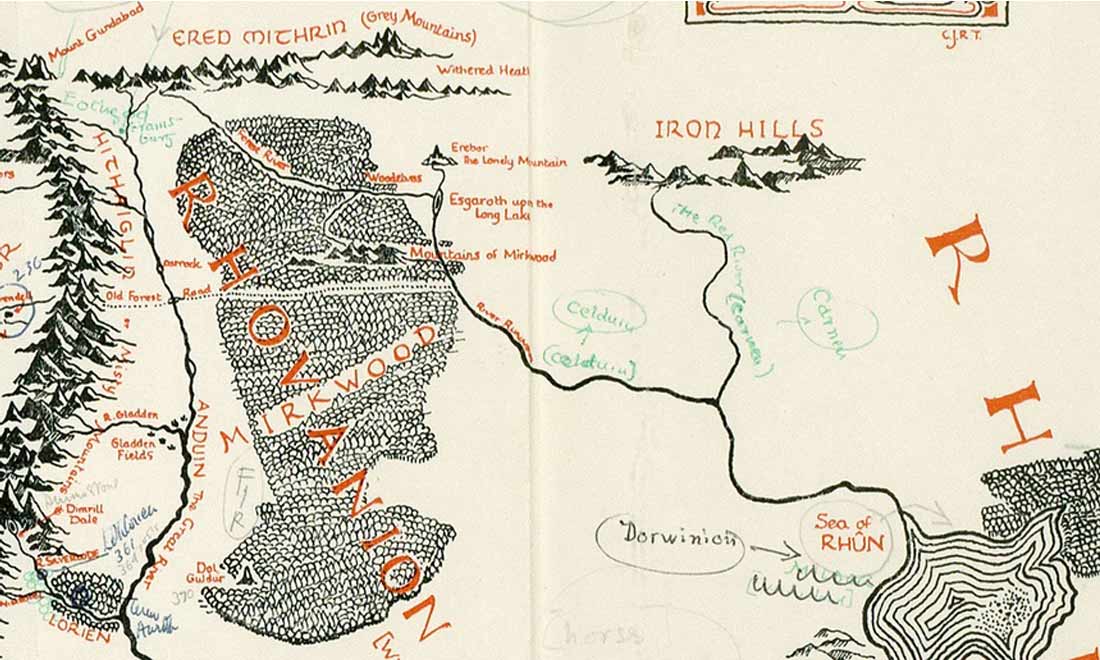 C.J.R.T.
Mount Gundabad
ERED MITHRIN (Grey Mountains)
Withered Heath
Eotheod
Frams-
burg
HITHAIGLIN
Forest River
IRON HILLS
Erebor
The Lonely Mountain
Woodelves
Esgaroth upon the
Long Lake
The Red River (Carnen)
R
H
RHOVANION
Carrock
Mountains of Mirkwood
236
Old Forest Road
River Running
Celduin
(Celduin)
Carnen
MIRKWOOD
or Misty
Mountains
R. Gladden
Gladden
Fields
ANDUIN The Great River
Dimrill
Dale
R. SILVERLODE
361
Dorwinion
Sea of
RHÛN
Dol
Guldur
370
Cerin
Amroth
LORIEN
horse